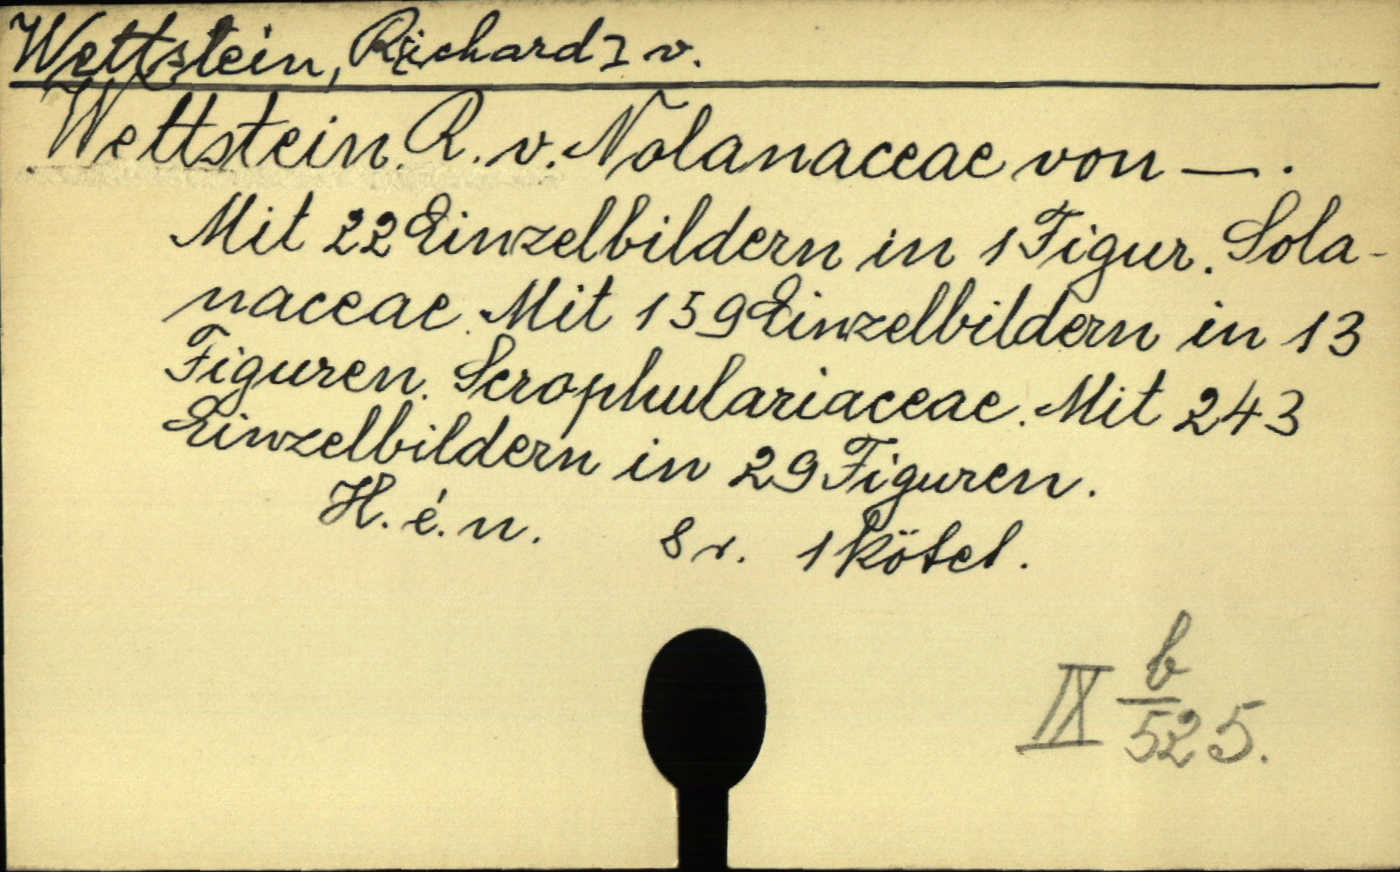 Wettstein, R[ichard] v.
Wettstein R. v. Nolanaceae von —.
Mit 22 Einzelbildern in 1 Figur. Sola-
naceae. Mit 159 Einzelbildern in 13
Figuren. Scrophulariaceae. Mit 243
Einzelbildern in 29 Figuren.
H. é. n. 8 r. 1 kötet.
IX b/525.